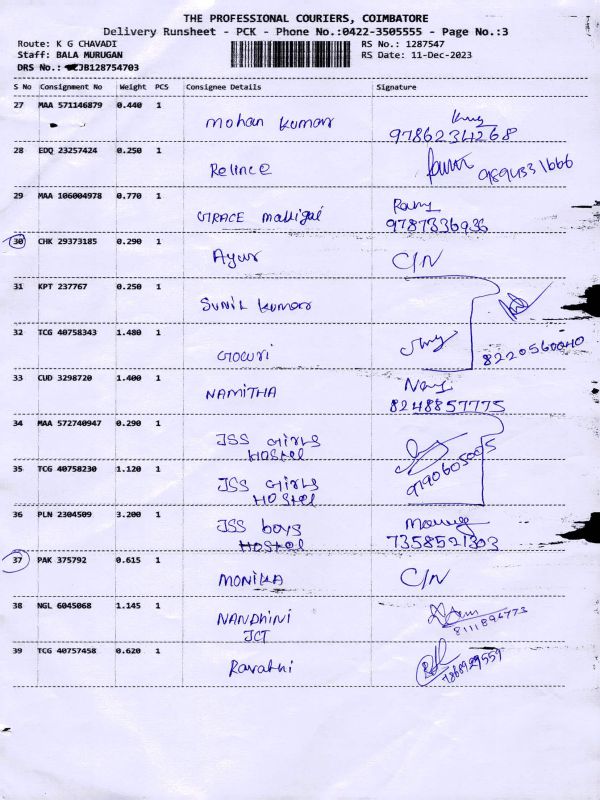 THE PROFESSIONAL COURIERS, COIMBATORE
Delivery Runsheet - PCK - Phone No.:0422-3505555 - Page No.:3
Route: K G CHAVADI
RS No.: 1287547
Staff: BALA MURUGAN
RS Date: 11-Dec-2023
DRS No.: JB128754703
S No Consignment No Weight PCS Consignee Details Signature
27 MAA 571146879 0.440 1
Mohan kumar
9786234268
28 EDQ 23257424 0.250 1
Relince
29 MAA 106004978 0.770 1
GRACE Malligai
Ramy
9787336936
30 CHK 29373185 0.290 1
Ayur C/N
31 KPT 237767 0.250 1
Sunil kumar
32 TCG 40758343 1.480 1
Gowri
8220560040
33 CUD 3298720 1.400 1
NAMITHA
8248857775
34 MAA 572740947 0.290 1
JSS Girls
Hostel
9790605005
35 TCG 40758230 1.120 1
JSS Girls
Hostel
36 PLN 2304509 3.200 1
JSS boys
Hostel
7358521303
37 PAK 375792 0.615 1
MONIKA C/N
38 NGL 6045068 1.145 1
NANDHINI
JCT
8111896773
39 TCG 40757458 0.620 1
Ravathi
7868929559